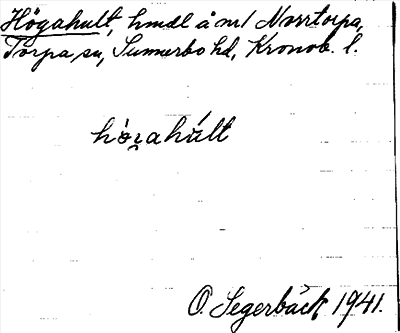 Högahult, hmdl å nr 1 Norrtorpa,
Torpa sn, Sunnerbo hd, Kronob. l.
hò̤ʒahúlt
O. Segerbäck 1941.